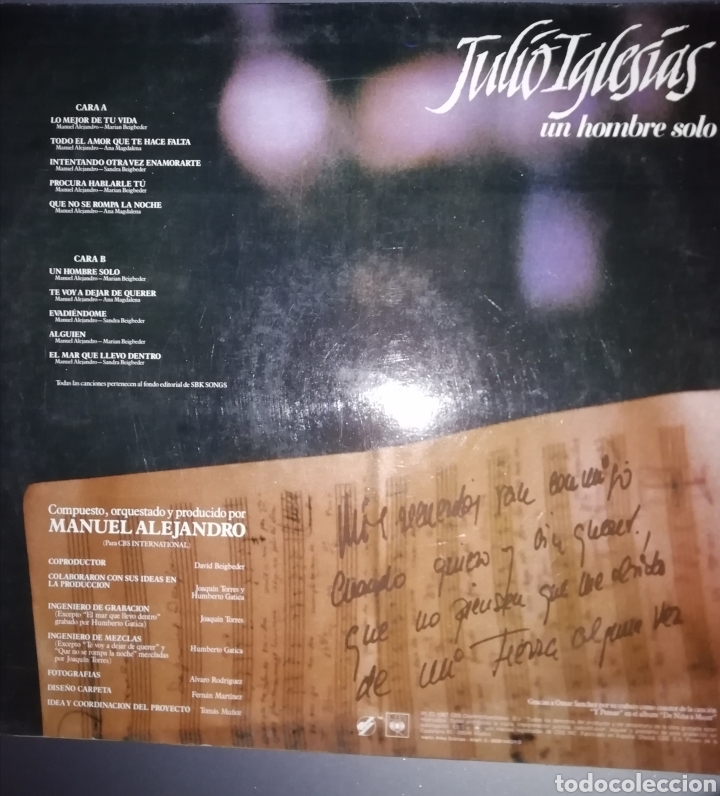 Julio Iglesias
un hombre solo
CARA A
LO MEJOR DE TU VIDA
Manuel Alejandro — Marian Beigbeder
TODO EL AMOR QUE TE HACE FALTA
Manuel Alejandro — Ana Magdalena
INTENTANDO OTRA VEZ ENAMORARTE
Manuel Alejandro — Sandra Beigbeder
PROCURA HABLARLE TÚ
Manuel Alejandro — Marian Beigbeder
QUE NO SE ROMPA LA NOCHE
Manuel Alejandro — Ana Magdalena
CARA B
UN HOMBRE SOLO
Manuel Alejandro — Marian Beigbeder
TE VOY A DEJAR DE QUERER
Manuel Alejandro — Ana Magdalena
EVADIÉNDOME
Manuel Alejandro — Sandra Beigbeder
ALGUIEN
Manuel Alejandro — Marian Beigbeder
EL MAR QUE LLEVO DENTRO
Manuel Alejandro — Sandra Beigbeder
Todas las canciones pertenecen al fondo editorial de SBK SONGS
Compuesto, orquestado y producido por
MANUEL ALEJANDRO
(Para CBS INTERNATIONAL)
COPRODUCTOR David Beigbeder
COLABORARON CON SUS IDEAS EN
LA PRODUCCION Joaquín Torres y
Humberto Gatica
INGENIERO DE GRABACION
(Excepto "El mar que llevo dentro" Joaquín Torres
grabado por Humberto Gatica)
INGENIERO DE MEZCLAS
(Excepto "Te voy a dejar de querer" y Humberto Gatica
"Que no se rompa la noche" mezcladas
por Joaquín Torres)
FOTOGRAFIAS Alvaro Rodríguez
DISEÑO CARPETA Fernán Martínez
IDEA Y COORDINACION DEL PROYECTO Tomás Muñoz
Mis recuerdos van conmigo
Cuando quiero y sin querer,
que no piensen que me olvido
de mi Tierra alguna vez
Gracias a Oscar Sánchez por su
"Y Pensar" en el album "De Niña a Mujer"
todocoleccion